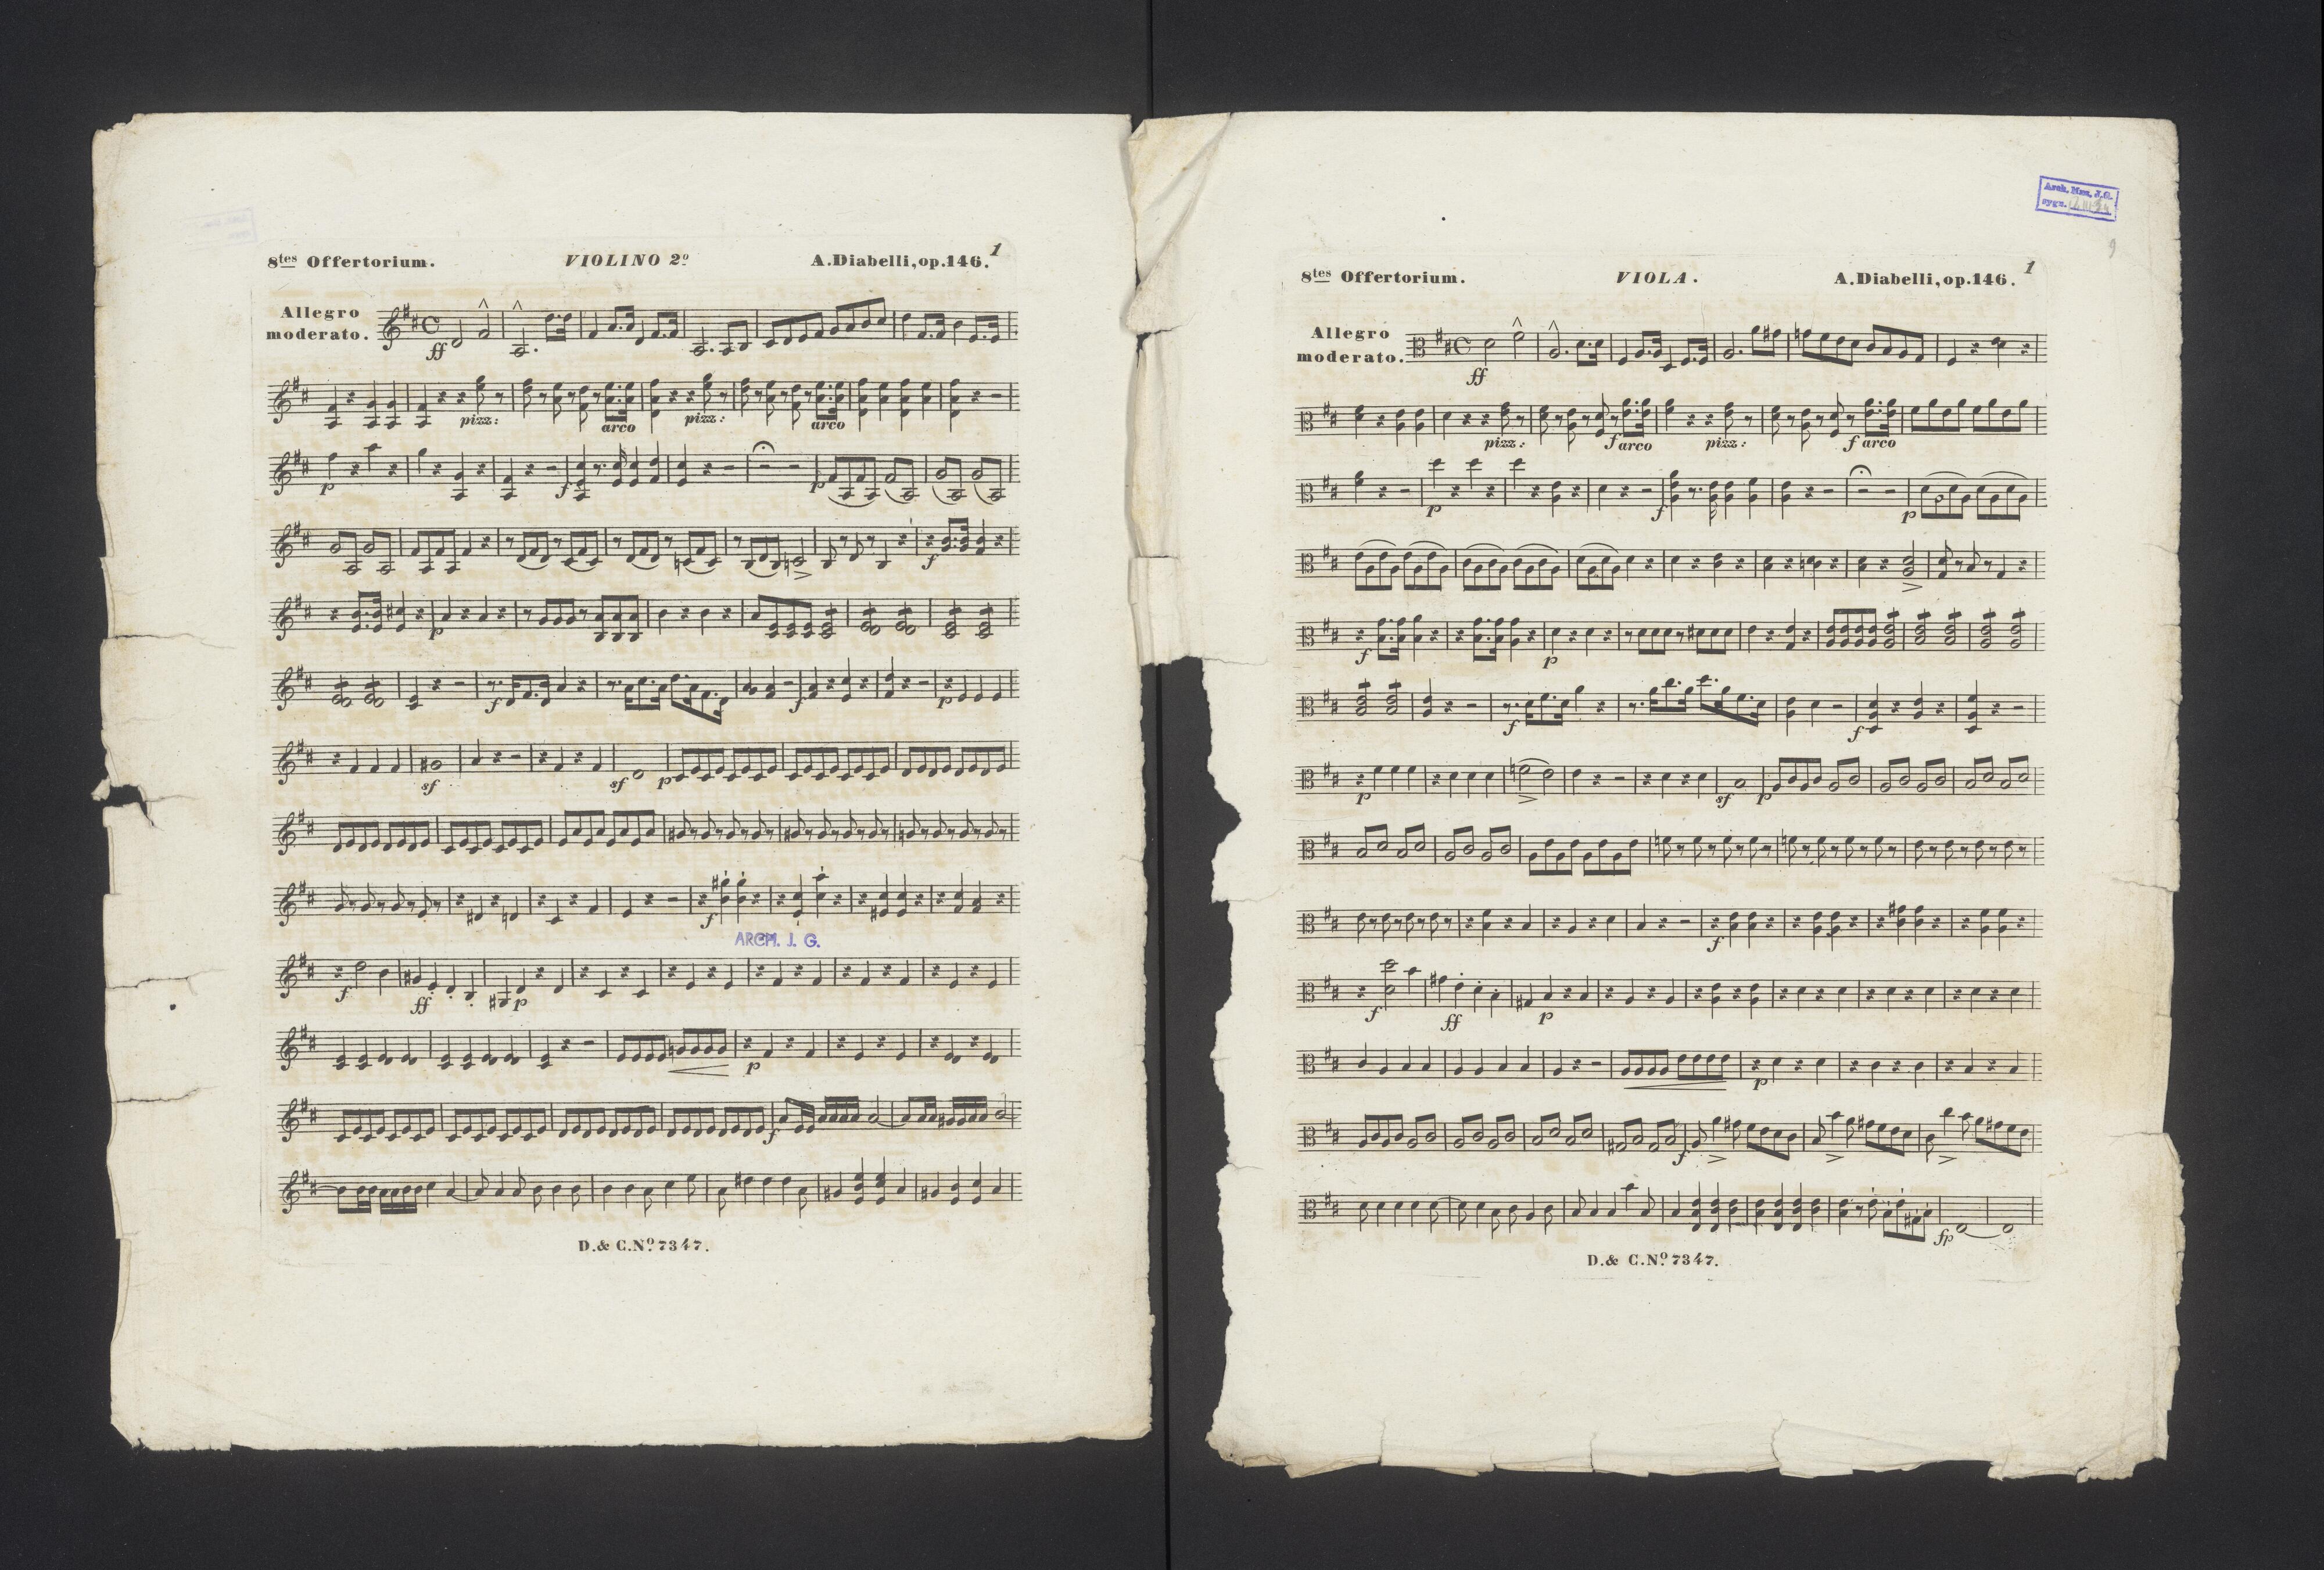 8tes Offertorium. VIOLINO 2o A.Diabelli,op.146. 1
Allegro
moderato.
ff
pizz: arco pizz: arco
p f p
f
p
f f p
sf sf p
f
ARCH. J. G.
f ff p
p
f
D.& C.No.7347.
Arch. Muz. J.G.
sygn.
9
8tes Offertorium. VIOLA. A.Diabelli,op.146. 1
Allegro
moderato.
ff
pizz: f arco pizz: f arco
p f p
f p
f f
p sf p
f
f ff p
p
f
fp
D.& C.No.7347.